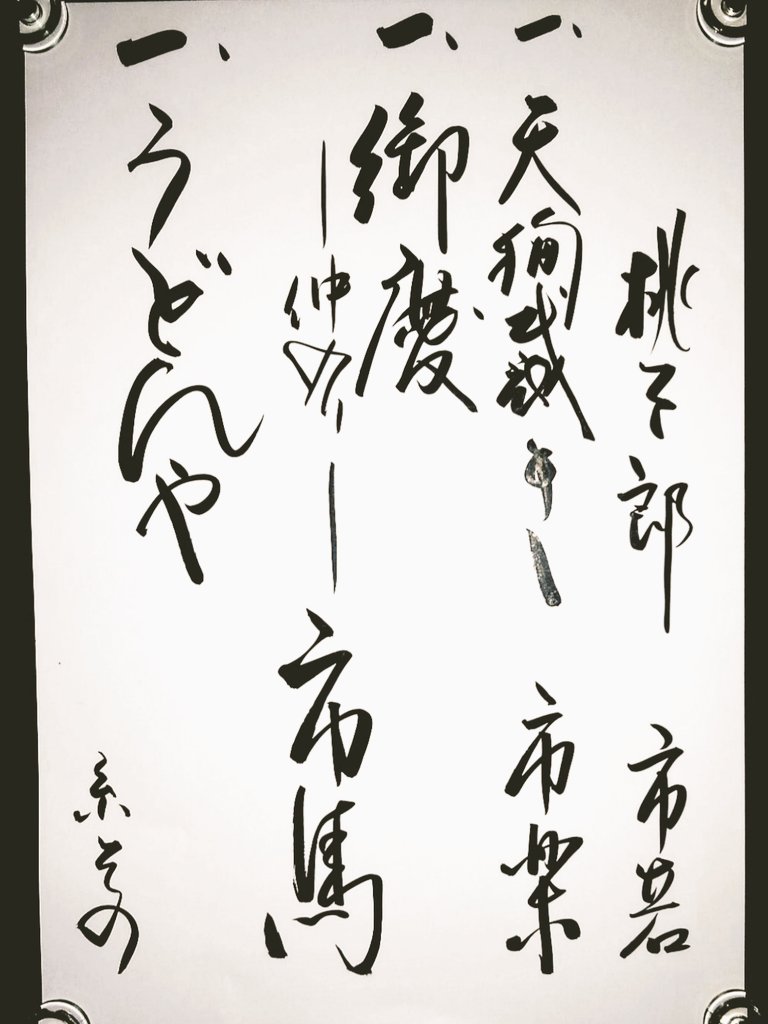 桃子郎 市若
一、天狗裁き 市楽
一、御慶
―仲入り― 市馬
一、うどんや
糸その